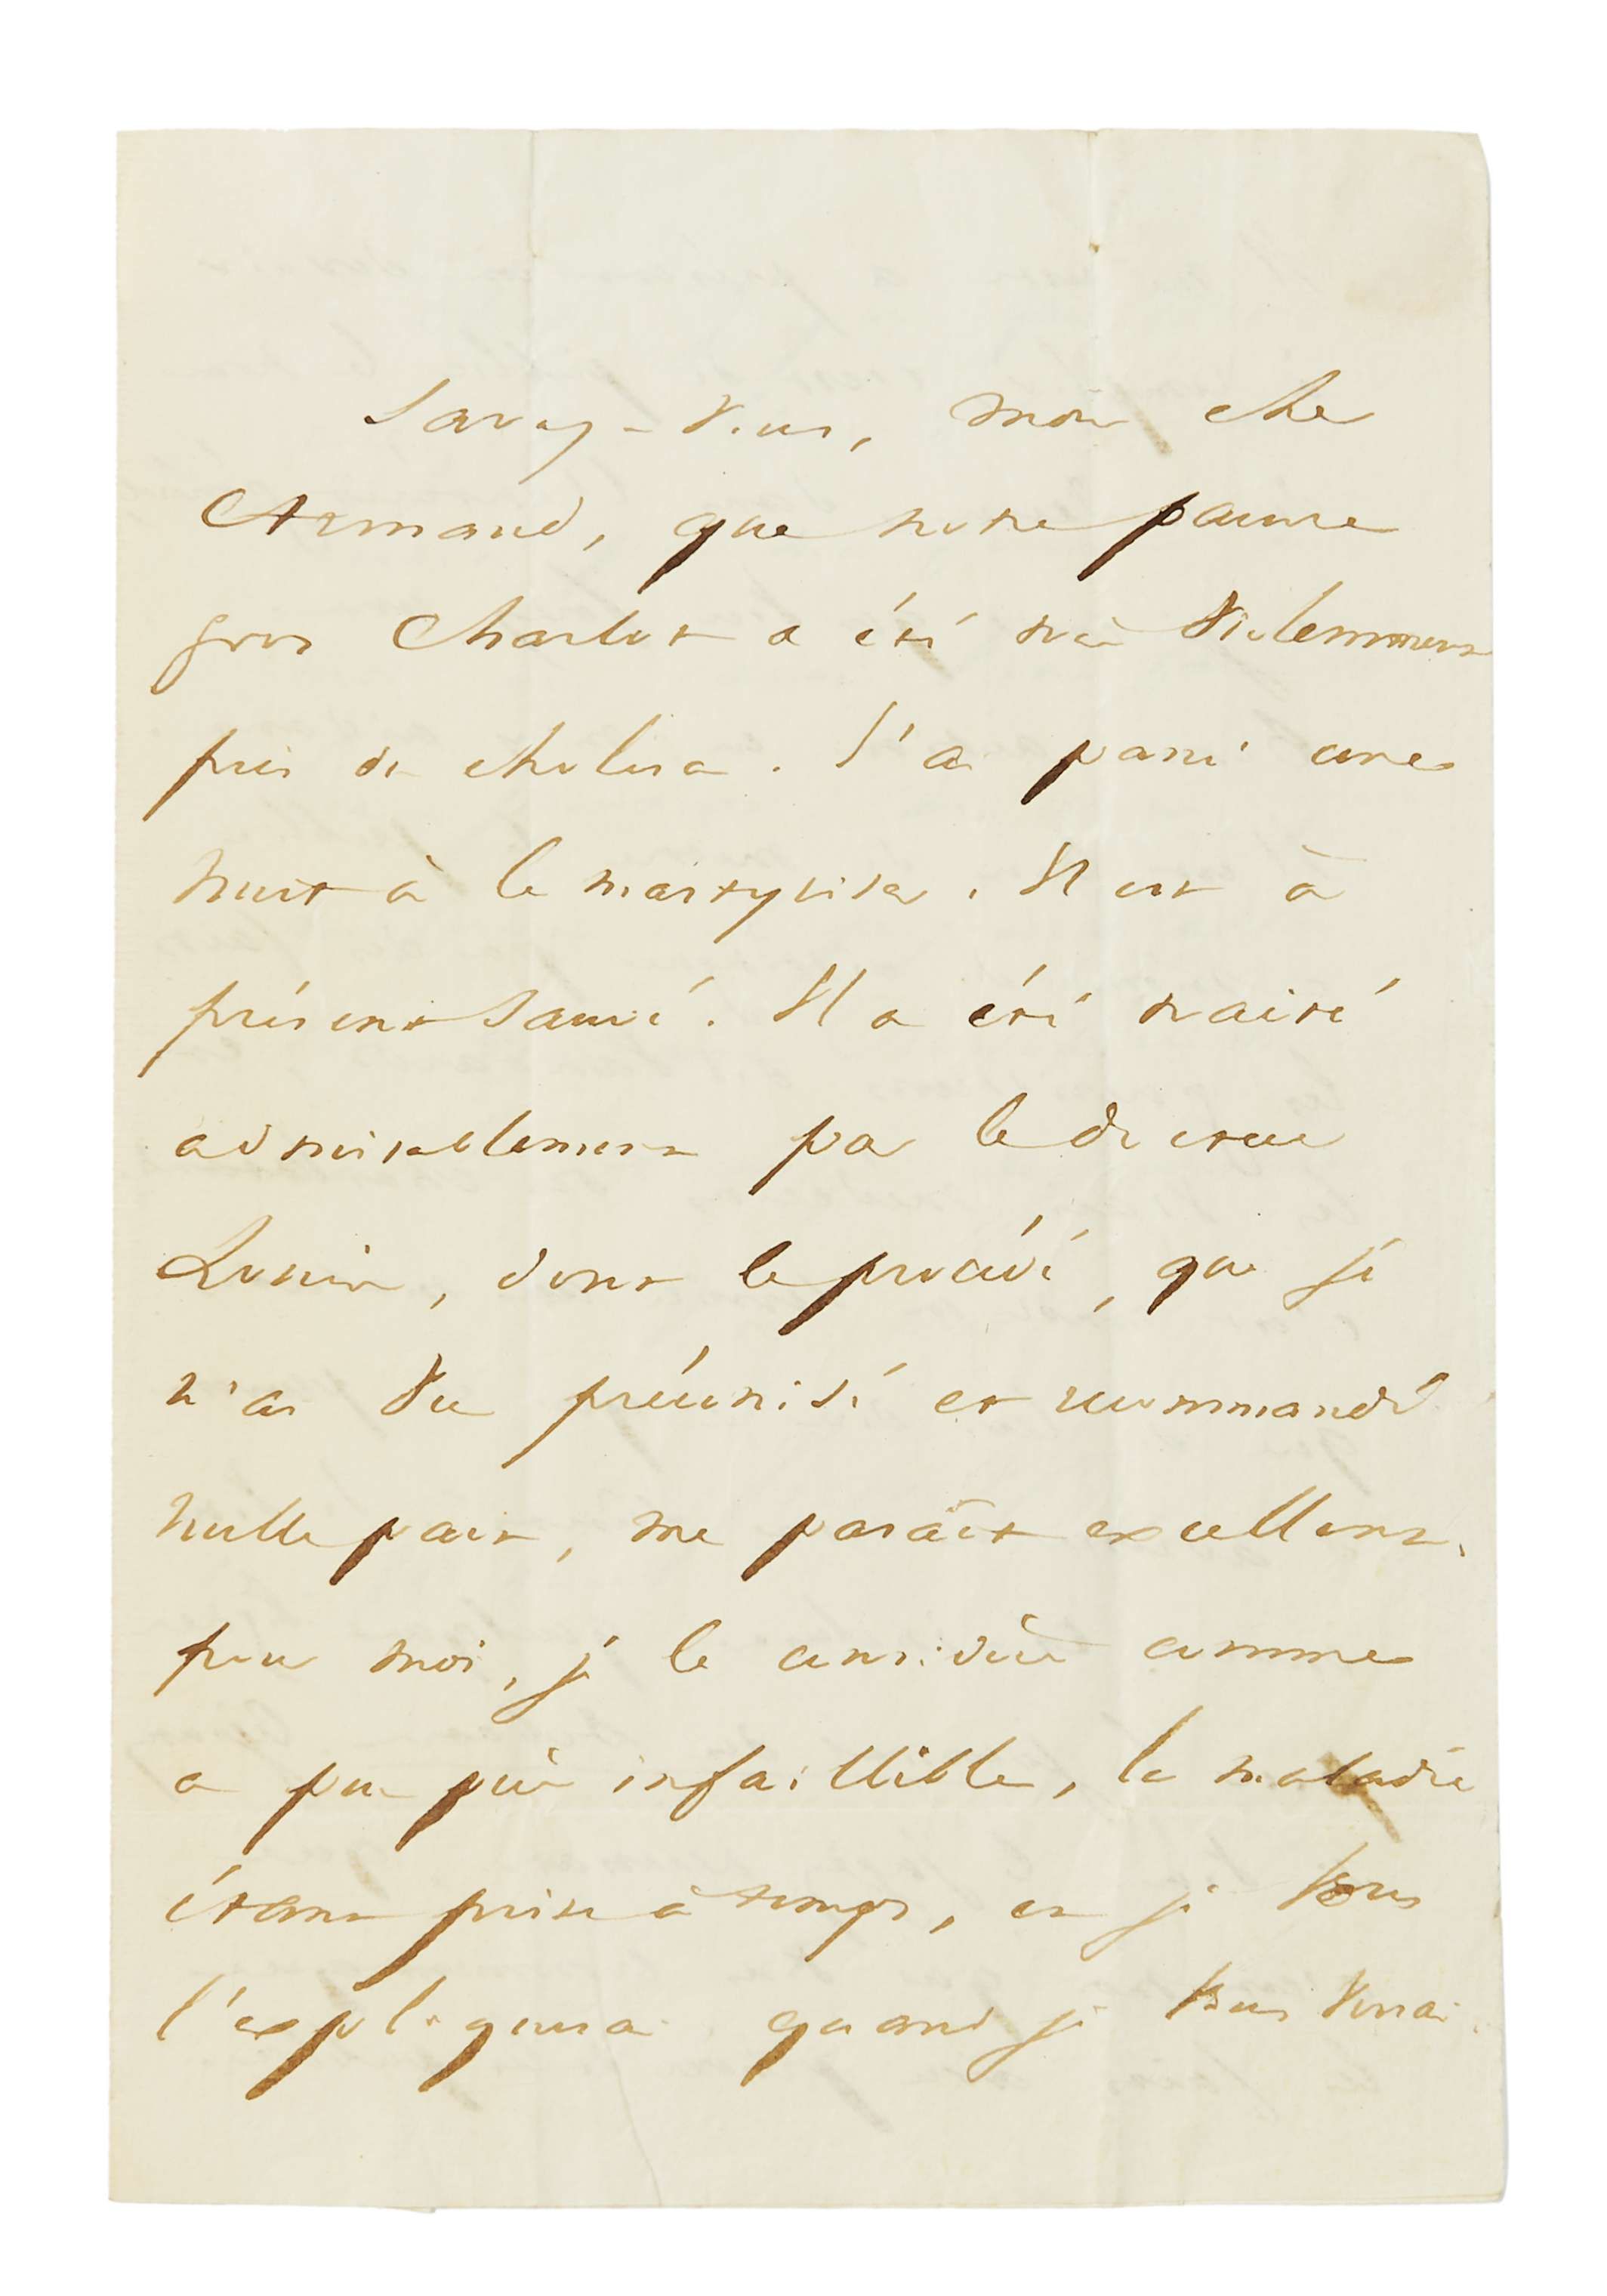 Savez-vous, mon cher
Armand, que notre pauvre
gros Charlot a été très violemment
pris du cholera. J'ai passé une
nuit à le martyriser. Il est à
présent sauvé. Il a été traité
admirablement par le docteur
Louis, dont le procédé, que je
n'ai vu préconisé et recommandé
nulle part, me paraît excellent.
pour moi, je le considère comme
a peu près infaillible, la maladie
étant prise à temps, et je vous
l'expliquerai quand je vous verrai.